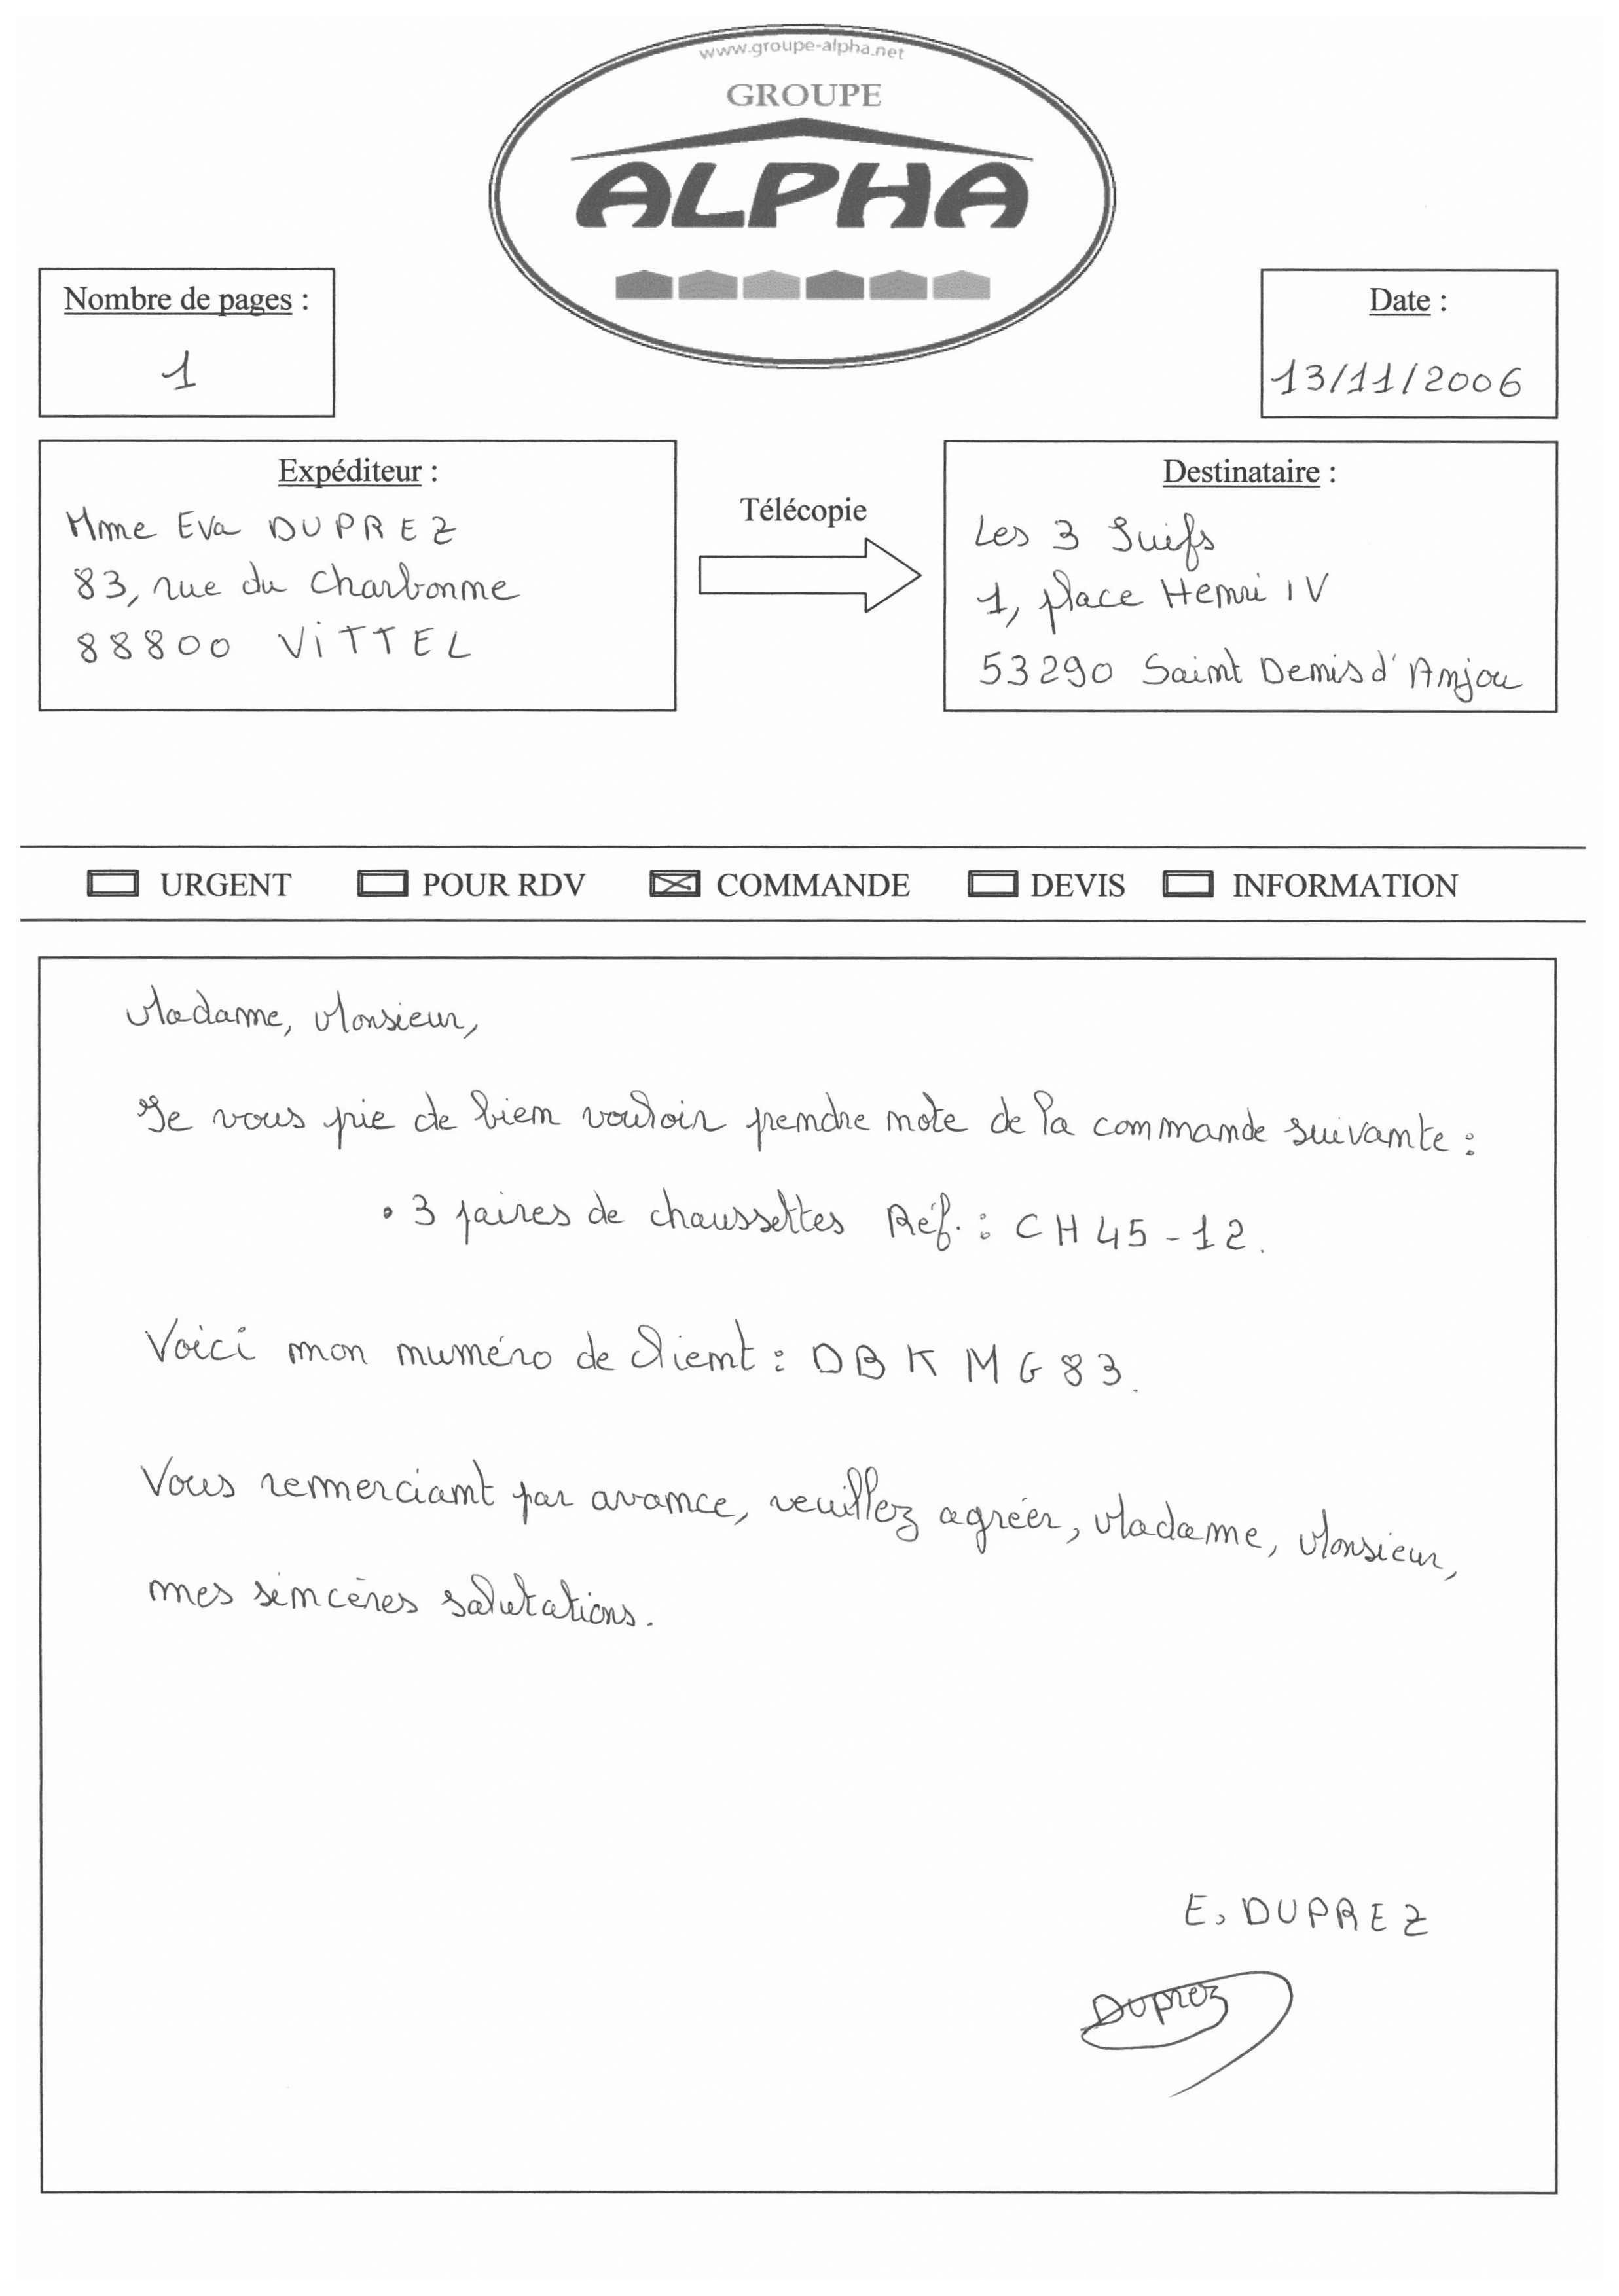 www.groupe-alpha.net
GROUPE
ALPHA
Nombre de pages :
1
Date :
13/11/2006
Expéditeur :
Mme Eva DUPREZ
83, rue du Charbonne
88800 VITTEL
Télécopie
Destinataire :
Les 3 Suifs
1, place Henri IV
53290 Saint Denis d'Anjou
URGENT POUR RDV COMMANDE DEVIS INFORMATION
Madame, Monsieur,
Je vous prie de bien vouloir prendre note de la commande suivante :
• 3 paires de chaussettes Réf. : CH45-12.
Voici mon numéro de client : DBKMG83.
Vous remerciant par avance, veuillez agréer, Madame, Monsieur,
mes sincères salutations.
E. DUPREZ
Duprez